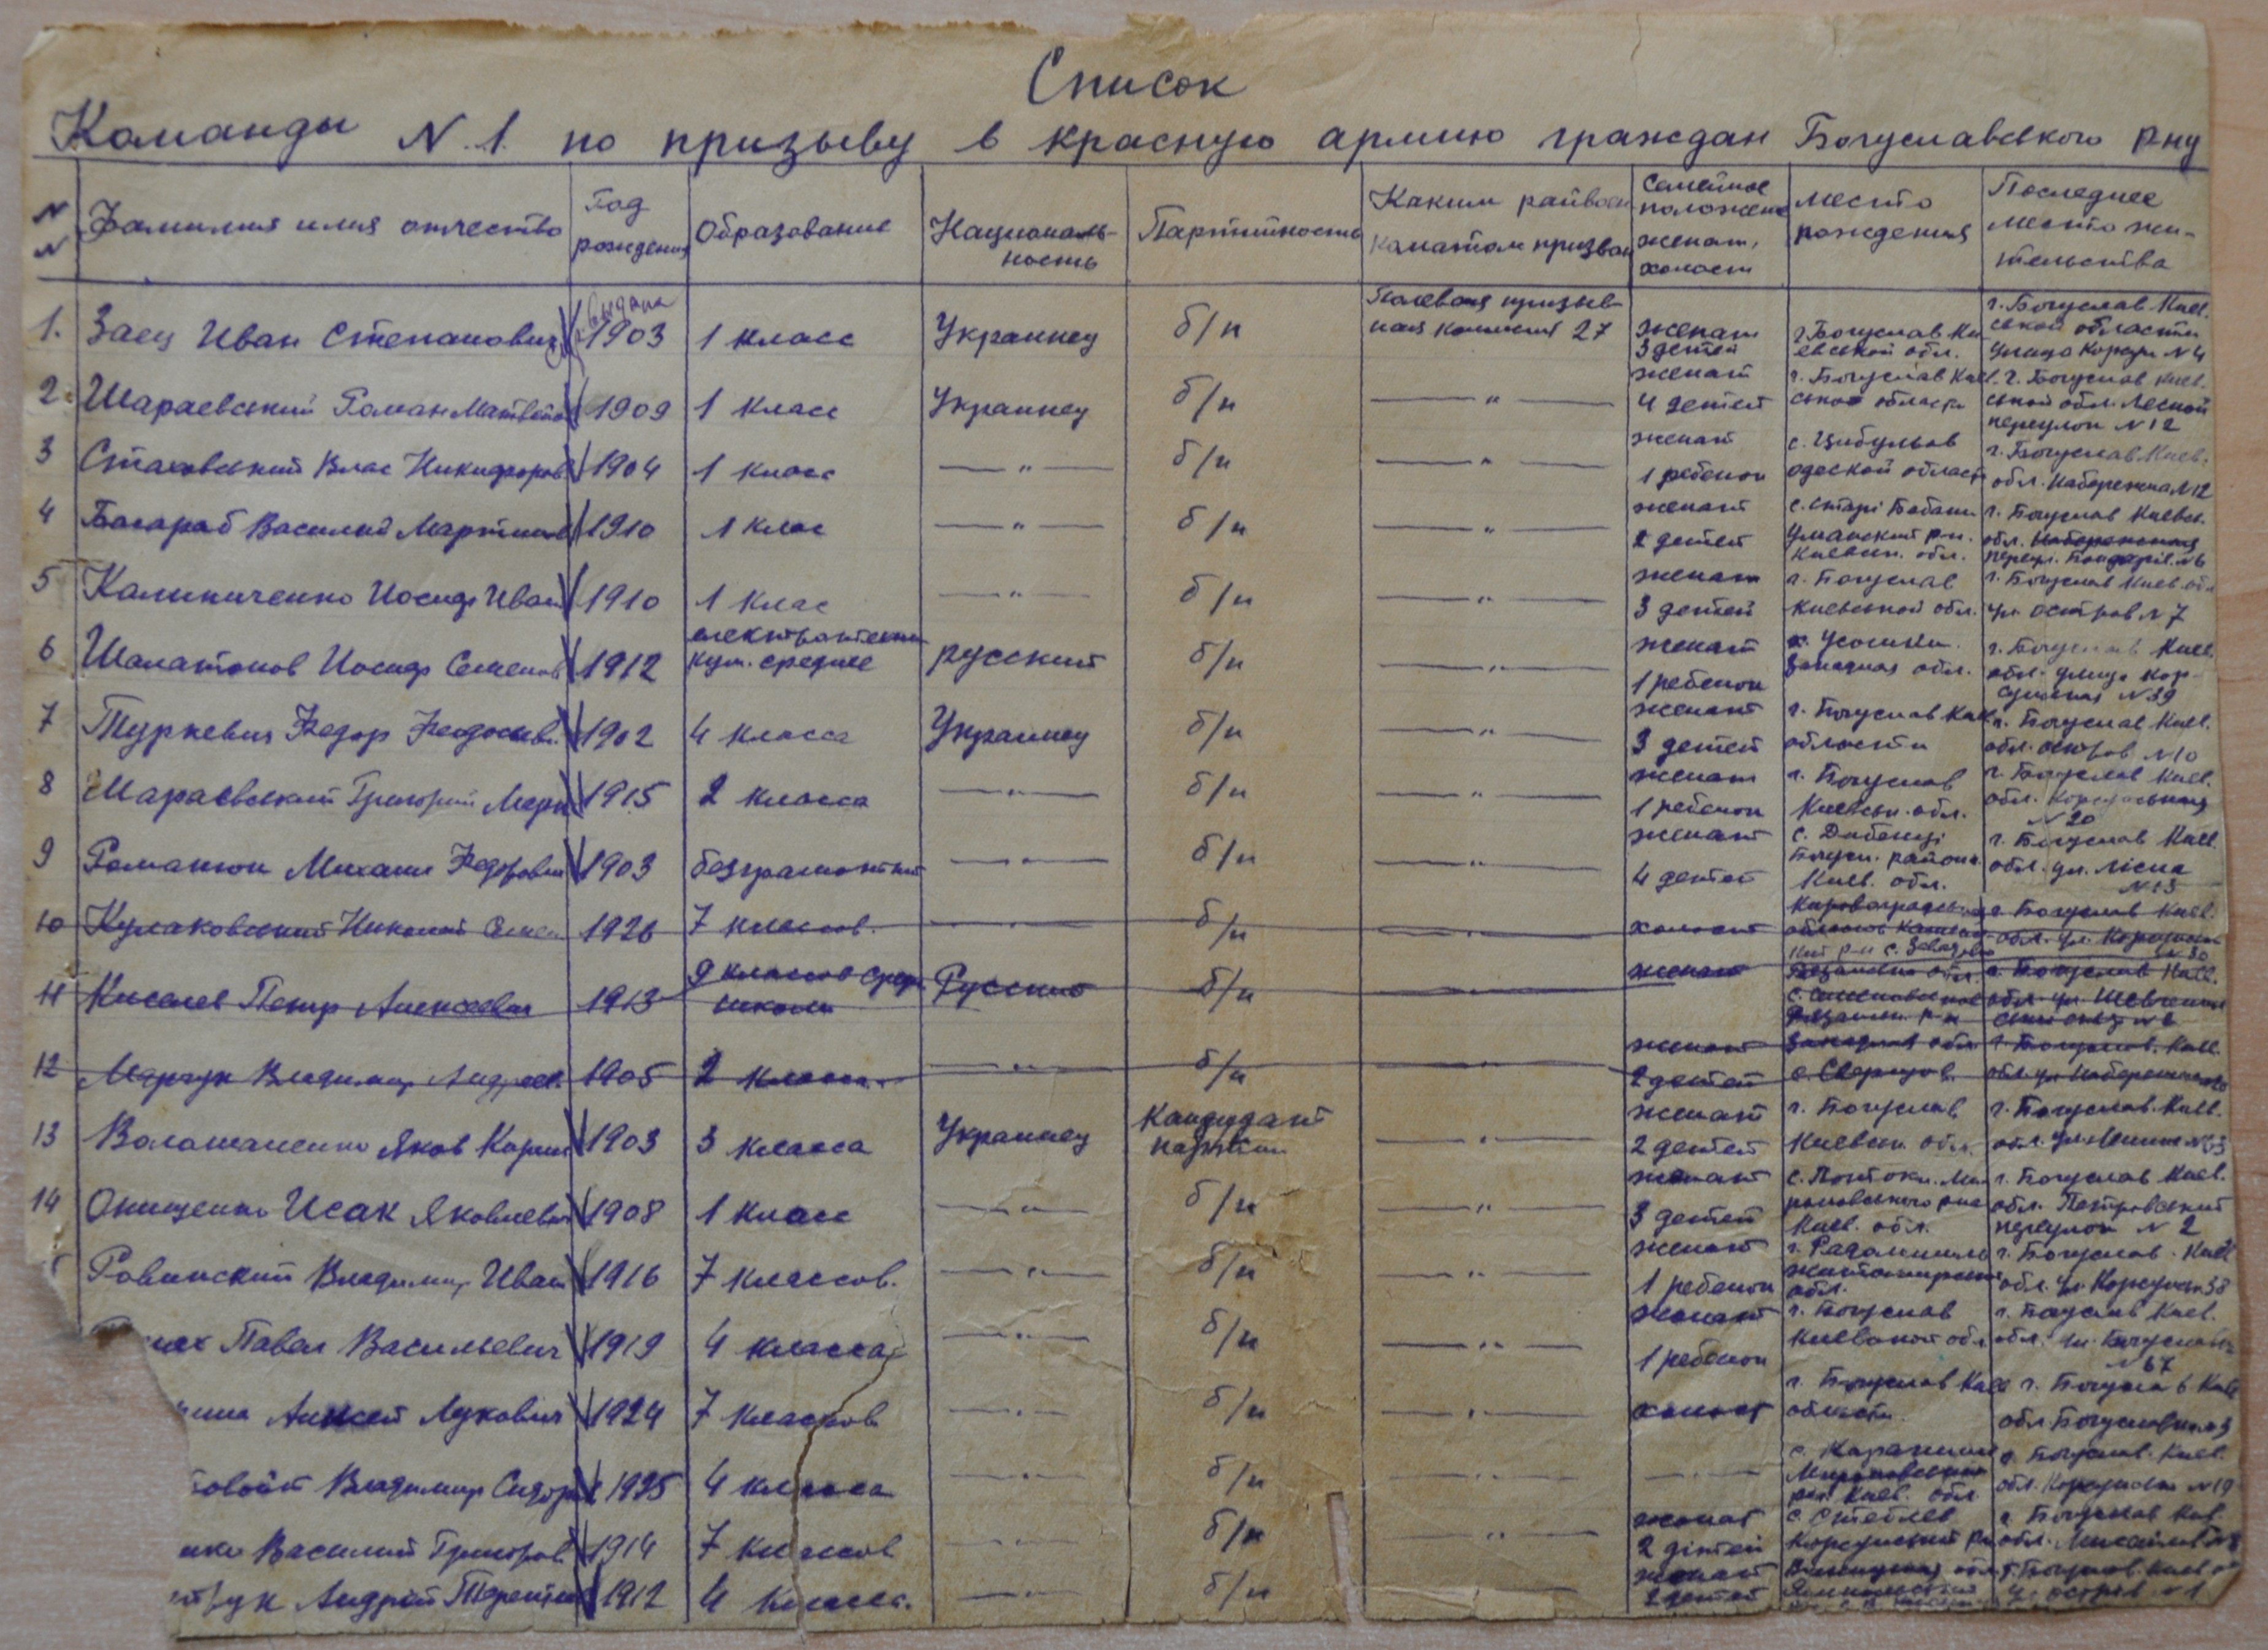 Список
Команды N. 1. по призыву в красную армию граждан Богуславського Р-ну
N N Фамилия имя отчество Год рождения Образование Националь-ность Партийность Каким райвоен коматом призван Семейное положение женат, холост место рождения Последнее место жи-тельства
1. Заец Иван Степанович 1903 1 класс Украинец б/п Полевая призыв-ная комиссия 27 женат 3 детей г. Богуслав Ки-евской обл. г. Богуслав Киев. ской области улица Корсун N 4
2. Шараевский Роман Матвеев 1909 1 класс Украинец б/п —"— женат 4 детей г. Богуслав Киев. ской области г. Богуслав Киев. ской обл. Лесной переулок N 12
3 Стаховский Влас Никифоров 1904 1 класс —"— б/п —"— женат 1 ребенок с. Цибульов одеской област г. Богуслав Киев. обл. Набережна N 12
4 Басараб Василий Мартинов 1910 1 клас —"— б/п —"— женат 2 детей с. Старі Бабани Уманский р-н. Киевск. обл. г. Богуслав Киевск. обл. Набережная переул. N 6
5 Калиниченко Иосиф Иван 1910 1 клас —"— б/п —"— женат 3 детей г. Богуслав Киевской обл. г. Богуслав Киев. обл ул. остров N 7
6 Шалатонов Иосиф Семенов 1912 кум. среднее русский б/п —"— женат 1 ребенок Западная обл. г. Богуслав Киев. обл. улица Кор-сунская N 39
7 Туркевич Федор Феодосиев. 1902 4 класса Украинец б/п —"— женат 3 детей г. Богуслав Киев. области г. Богуслав Киев. обл. остров N 10
8 Шараевский Григорий Марк 1915 2 класса —"— б/п —"— женат 1 ребенок г. Богуслав Киевськ. обл. г. Богуслав Киев. обл. Корсунськая N 20
9 Романюк Михаил Федорович 1903 безграмотный —"— б/п —"— женат 4 детей с. Дибенці Богусл. района Киев. обл. г. Богуслав Киев. обл. ул. Лісна N 13
10 Кулаковский Николай Семен 1926 7 классов. —"— б/п —"— холост Кировоградськ р-н г. Богуслав Киев. обл. ул. Корсунск N 30
11 Киселев Петр Алексеевич 1913 9 классов сред. школы Русский б/п —"— женат г. Богуслав Киев. обл. ул. Шевченко
12 Марчук Владимир Андреев. 1905 2 класса. —"— б/п —"— женат 2 детей Западная обл г. Богуслав. Киев. обл. ул Набережная
13 Волошаненко Яков Карпов 1903 3 класса Украинец Кандидат партии —"— женат 2 детей г. Богуслав Киевск. обл. г. Богуслав. Киев. обл. ул. Ленина
14 Онищенко Исак Яковлевич 1908 1 класс —"— б/п —"— женат 3 детей Киев. обл. г. Богуслав Киев. обл. Петровский переулок N 2
Ровинский Владимир Иван 1916 7 классов. —"— б/п —"— женат 1 ребенок г. Радомишль житомирск обл. г. Богуслав. Киев обл. ул. Корсунск 38
Павел Васильевич 1919 4 класса —"— б/п —"— женат 1 ребенок г. Богуслав Киевской обл г. Богуслав Киев. обл. ул. Богуславск N 67
Алексей Лукович 1924 7 классов —"— б/п —"— холост г. Богуслав Киев области. г. Богуслав Киев обл. Богуславка
Владимир Сидор 1925 4 класса —"— б/п —"— —"— с. Карапиши Мироновский р-н. Киев. обл. г. Богуслав. Киев. обл. Корсунська N 19
Василий Григоров 1914 7 классов —"— б/п —"— женат 2 дітей с. Стеблев Корсунский р-н г. Богуслав Киев. обл.
Андрій Терентие 1912 4 класса. —"— б/п женат 2 детей г. Богуслав. Киев об ул. остров N 1